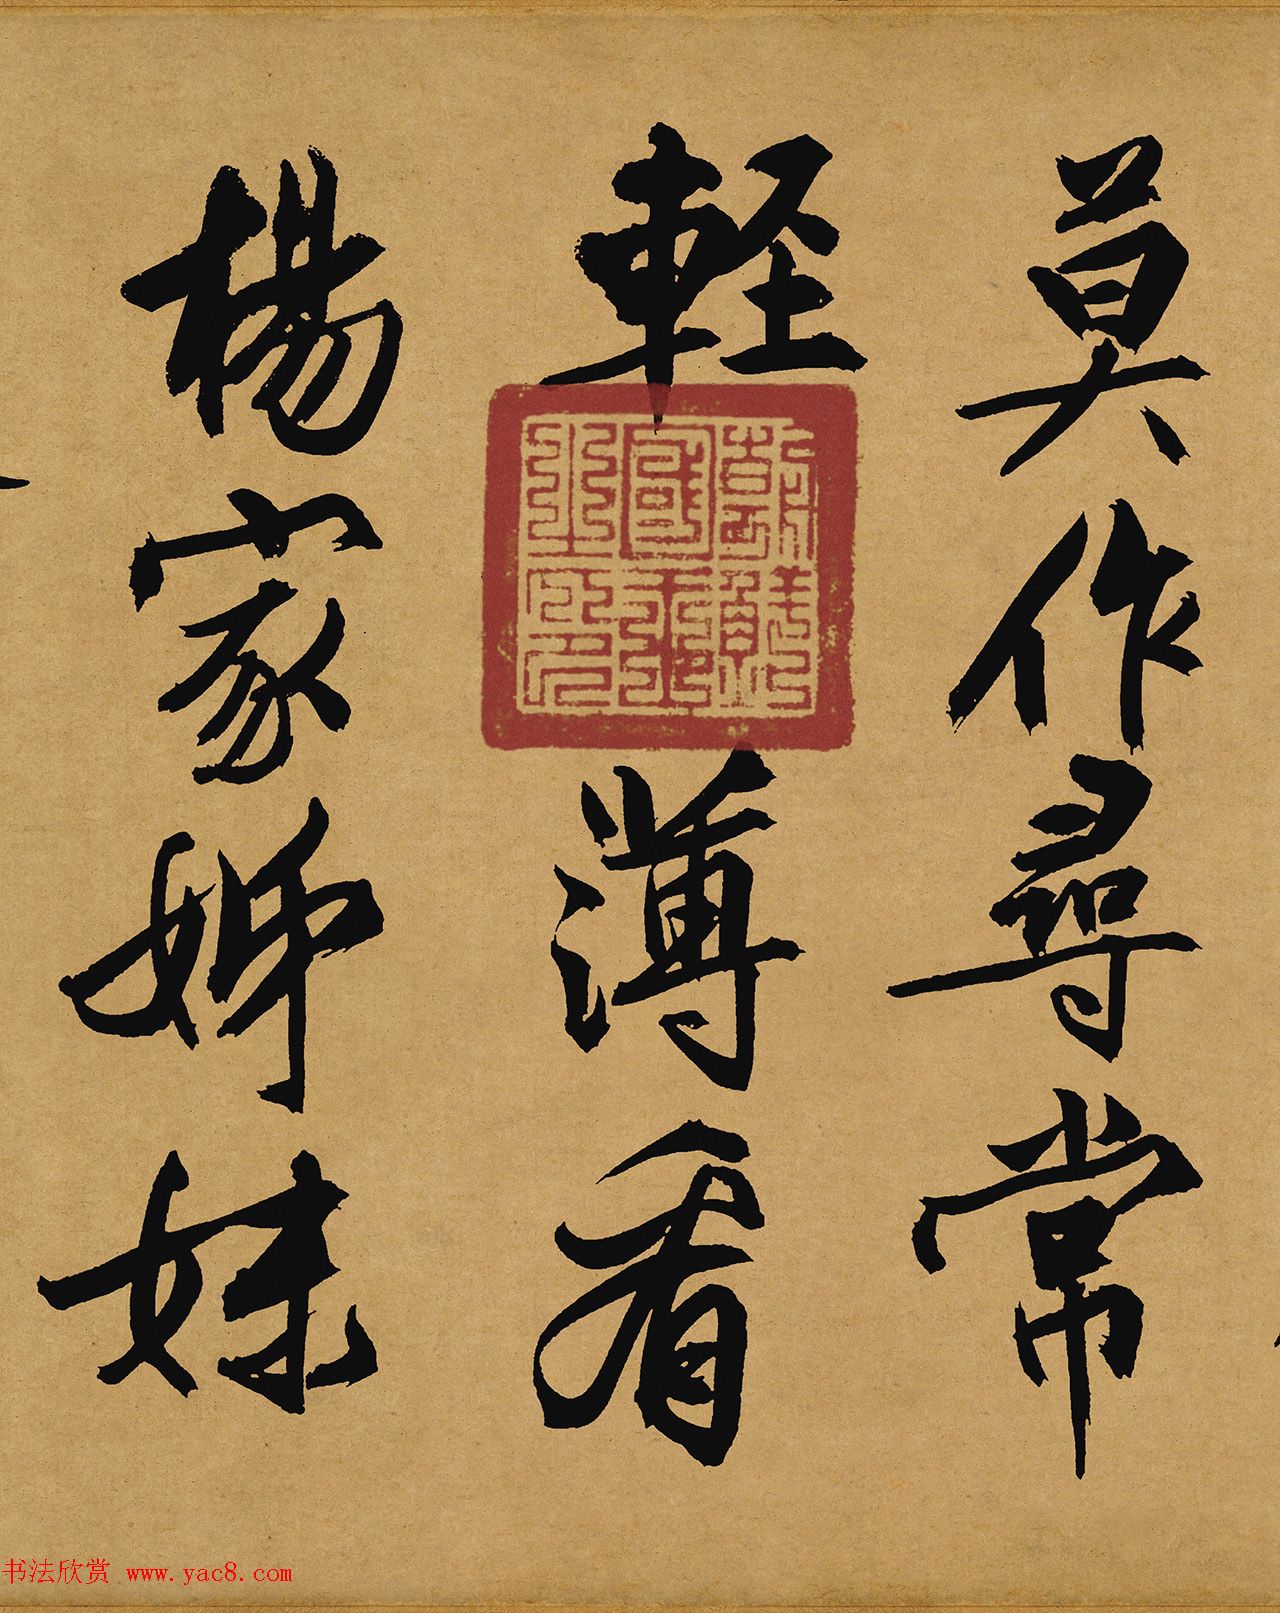 莫作尋常
輕薄看
楊家姊妹
书法欣赏 www.yac8.com